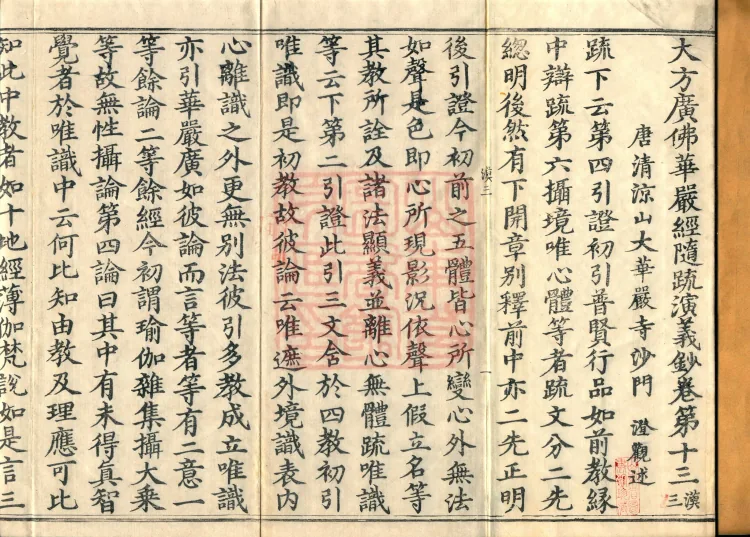 大方廣佛華嚴經隨疏演義鈔卷第十三 漢三
唐清涼山大華嚴寺沙門 澄觀述
疏下云第四引證初引普賢行品如前教緣
中辯疏第六攝境唯心體等者疏文分二先
總明後然有下開章別釋前中亦二先正明
漢三 一
後引證今初前之五體皆心所變心外無法
如聲是色即心所現影況依聲上假立名等
其教所詮及諸法顯義並離心無體疏唯識
等云下第二引證此引三文含於四教初引
唯識即是初教故彼論云唯遮外境識表內
心離識之外更無別法彼引多教成立唯識
亦引華嚴廣如彼論而言等者等有二意一
等餘論二等餘經今初謂瑜伽雜集攝大乘
等故無性攝論第四論曰其中有未得真智
覺者於唯識中云何比知由教及理應可比
知此中教者如十地經薄伽梵說如是言三